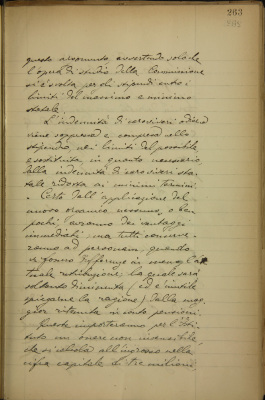 263
questo argomento, avvertendo solo che
l'opera di studio della Commissione
si è svolta per gli stipendi entro i
limiti del massimo e minimo
statale.
L'indennità di caroviveri
viene soppressa e compresa nello
stipendio nei limiti del possibile
e sostituita in quanto necessario
dalla indennità di caroviveri sta-
tale ridotta ai minimi termini.
Certo dall'applicazione del
nuovo organico nessuno, o ben
pochi avranno dei vantaggi
immediati ma tutti conserve-
ranno ad personam quando
a fosse differenza in meno
tuale retribuzione la quale sarà
soldando diminuita (ed è inutile
spiegarne la ragione) dalla mag-
gior ritenuta in conto pensioni.
Queste importeranno per l'Isti-
tuto un onere non
da si calcola all'incirca nella
cifra capitale di tre milioni